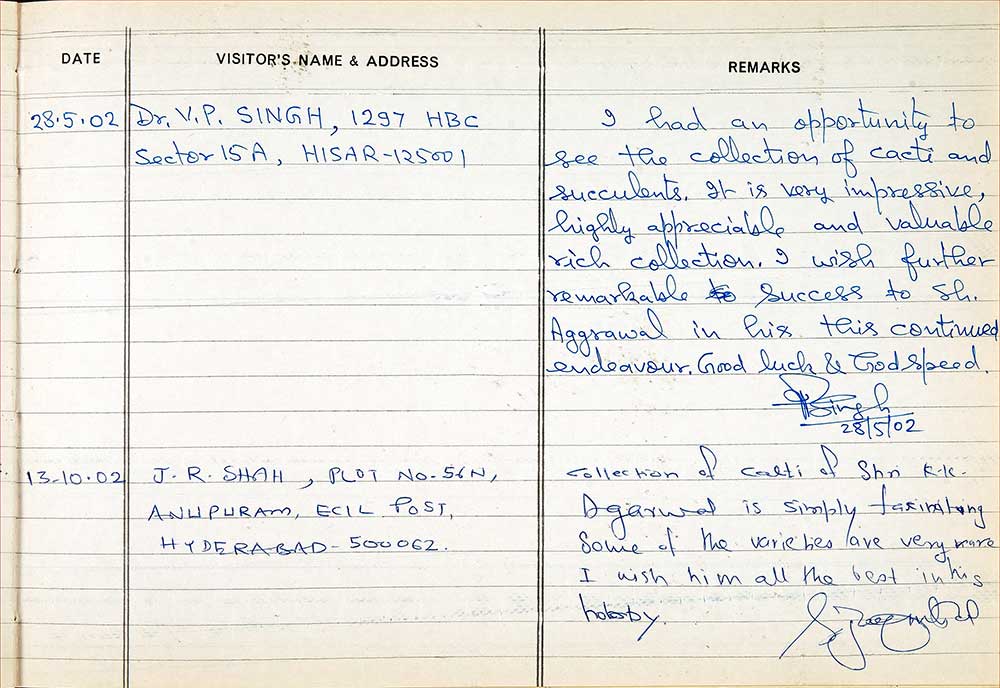 DATE
VISITOR'S NAME & ADDRESS
REMARKS
28.5.02
Dr. V.P. SINGH, 1297 HBC
Sector 15A, HISAR-125001
I had an opportunity to
see the collection of cacti and
succulents. It is very impressive,
highly appreciable and valuable
rich collection. I wish further
remarkable to success to Sh.
Aggrawal in his this continued
endeavour. Good luck & God speed.
Singh
28/5/02
13-10.02
J. R. SHAH, PLOT No. 56N,
ANUPURAM, ECIL POST,
HYDERABAD-500062.
Collection of Cacti of Shri K.K.
Agarwal is simply
Some of the varieties are very rare
I wish him all the best in his
hobby.